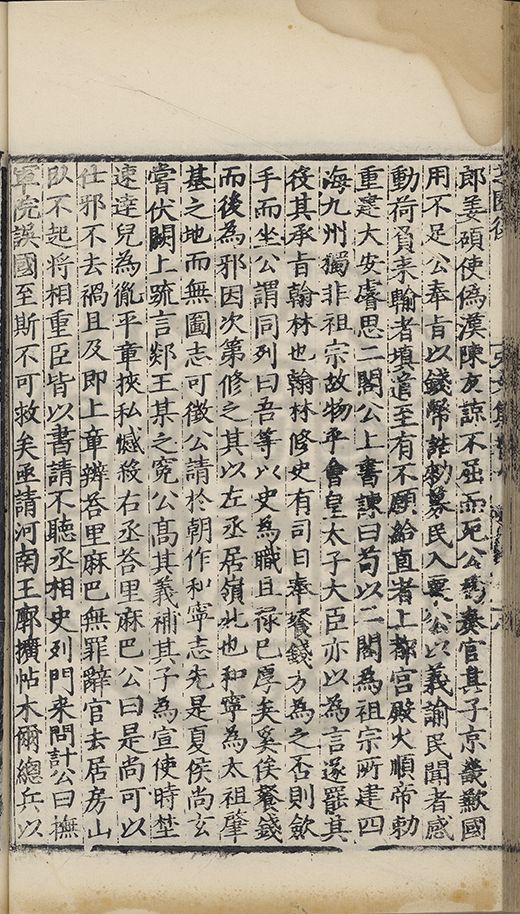 郎姜碩使偽漢陳友諒不屈而死公為奏官其子京畿歉國
用不足公奉旨以錢幣誥勑募民入粟公以義諭民聞者感
動荷負來輸者填道至有不願給直者上都宮殿火順帝勅
重建大安睿思二閣公上書諫曰苟以二閣為祖宗所建四
海九州獨非祖宗故物乎會皇太子大臣亦以為言遂罷其
役其承旨翰林也翰林修史有司日奉餐錢方為之否則歛
手而坐公謂同列曰吾等以史為職且祿已厚矣奚俟餐錢
而後為邪因次第修之其以左丞居嶺北也和寧為太祖肇
基之地而無圖志可徵公請於朝作和寧志先是夏侯尚玄
嘗伏闕上䟽言郯王某之冤公髙其義補其子為宣使時埜
速達兒為㣧平章挾私憾殺右丞荅里麻巴公曰是尚可以
仕邪不去禍且及即上章辨荅里麻巴無罪辭官去居房山
臥不起将相重臣皆以書請不聽丞相史列門来問計公曰撫
軍院誤國至斯不可救矣亟請河南王廓擴帖木爾總兵以